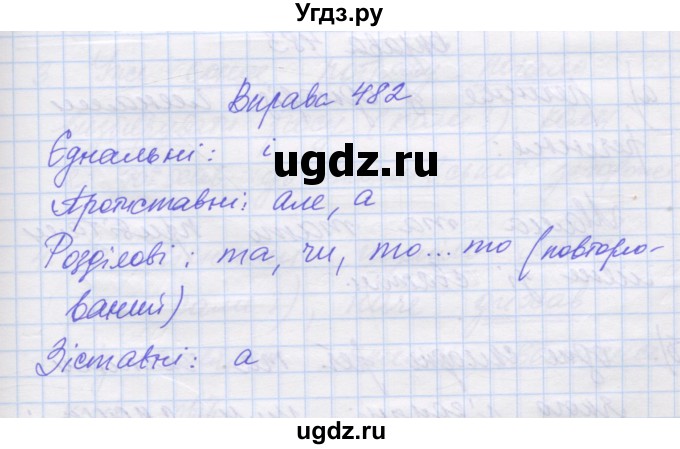 Угдз.ру
Вправа 482
Єднальні: і
ugdz.ru
Протиставні: але, а
Розділові: та, чи, то...то (повторю-
ваний)
Зіставні: а
ugdz.ru